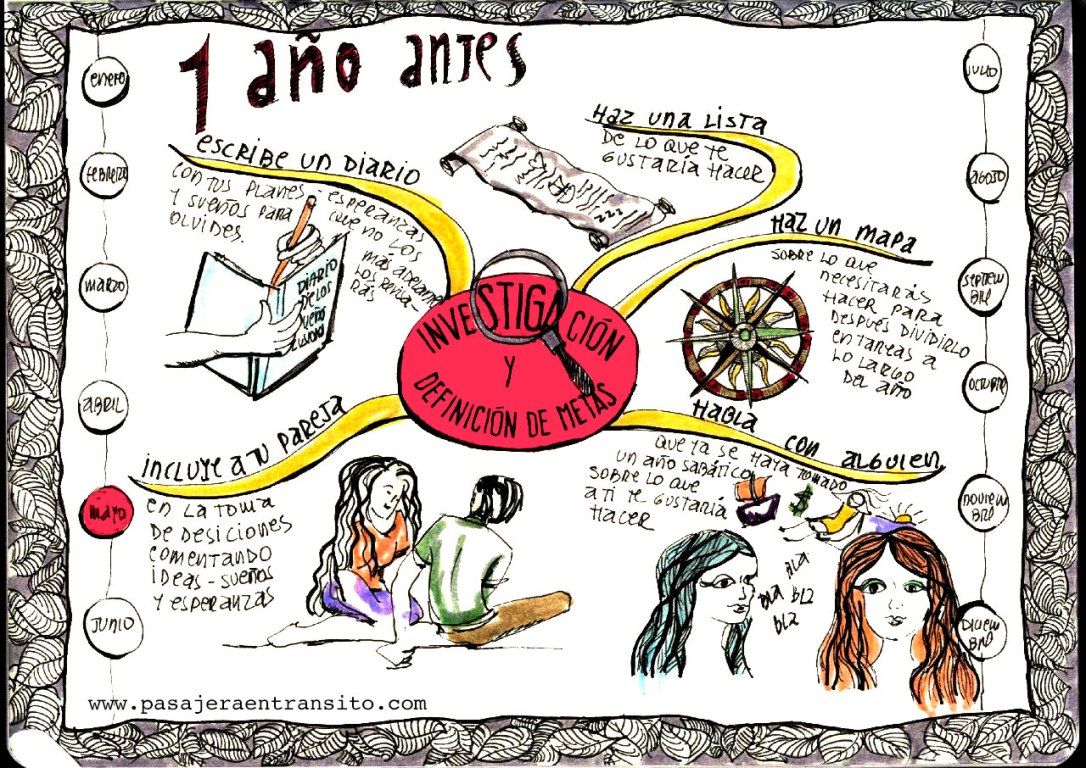 1 año antes
enero
febrero
marzo
ABRIL
mayo
JUNIO
JULIO
AGOSTO
septiem
BRE
OCTUBRE
noviem
BRE
Diciem
BRE
escribe un DIARIO
con tus planes - esperanzas
y sueños para que no los
olvides.
más adelante
los revisa-
rás
DIARIO
DE LOS
sueños
HAZ una LISTA
DE LO QUE TE
GUSTARÍA HACER
HAZ UN MAPA
SOBRE LO QUE
necesitarás
HACER PARA
DESPUÉS DIVIDIRLO
en tareas a
LO LARGO
DEL AÑO
INVESTIGACIÓN
Y
DEFINICIÓN DE METAS
INCLUYE A TU PAREJA
en LA TOMA
DE DESICIONES
COMENTANDO
IDEAS - sueños
Y esperanzas
HABLA con ALGUIEN
que ya se haya tomado
un año sabático
SOBRE LO QUE
A TI TE GUSTARÍA
HACER
BLA
BLA BLZ
BLZ
www.pasajeraentransito.com